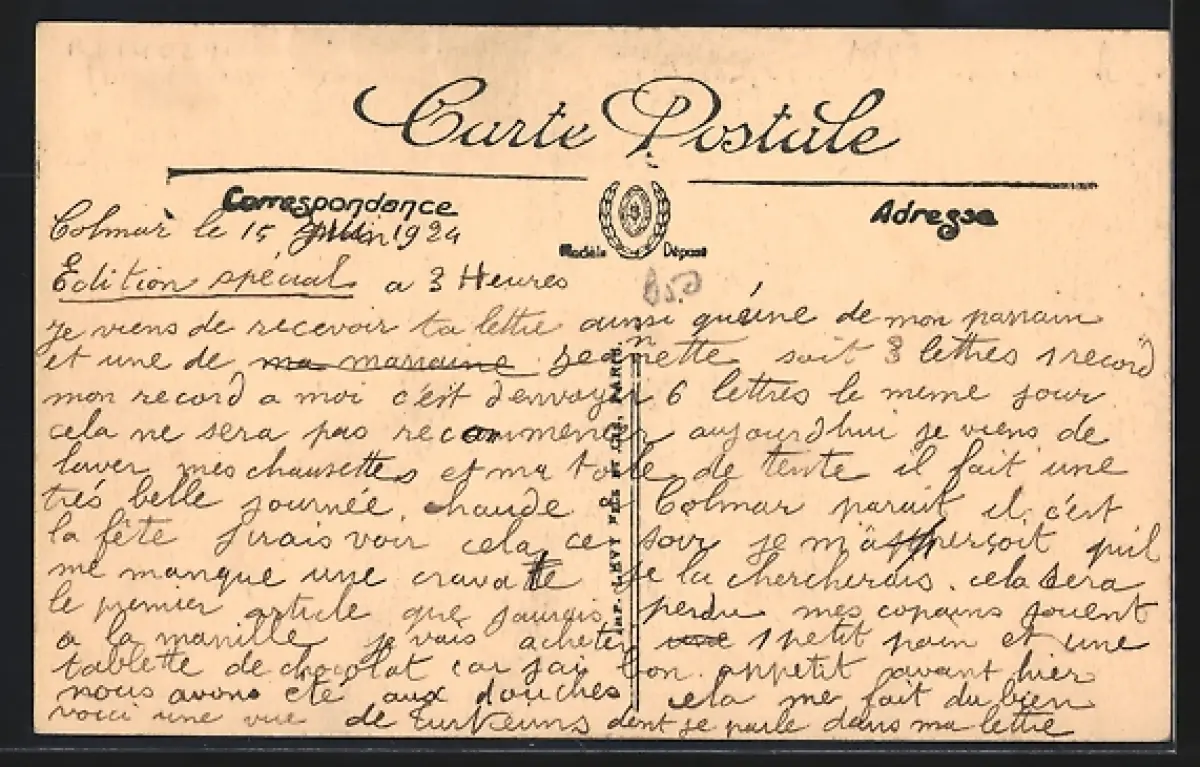 Carte Postale
Correspondance
Adresse
Modèle Déposé
B50
IMP. LEVY FILS ET CIE, PARIS.
Colmar le 15 Juin 1924
Edition spécial a 3 Heures
Je viens de recevoir ta lettre ainsi qu'une de mon parrain
et une de ma marraine Jeannette soit 3 lettres 1 record
mon record a moi c'est d'envoyer 6 lettres le meme jour
cela ne sera pas recommencer aujourd'hui je viens de
laver mes chaussettes et ma toile de tente il fait une
très belle journée chaude a Colmar parait il c'est
la fête j'irais voir cela ce soir je m'apperçoit quil
me manque une cravate je la chercherais. cela sera
le premier article que j'aurais perdu mes copains jouent
a la manille je vais acheter une 1 petit pain et une
tablette de chocolat car j'ai bon appetit avant hier
nous avons été aux douches cela me fait du bien
voici une vue de dont je parle dans ma lettre